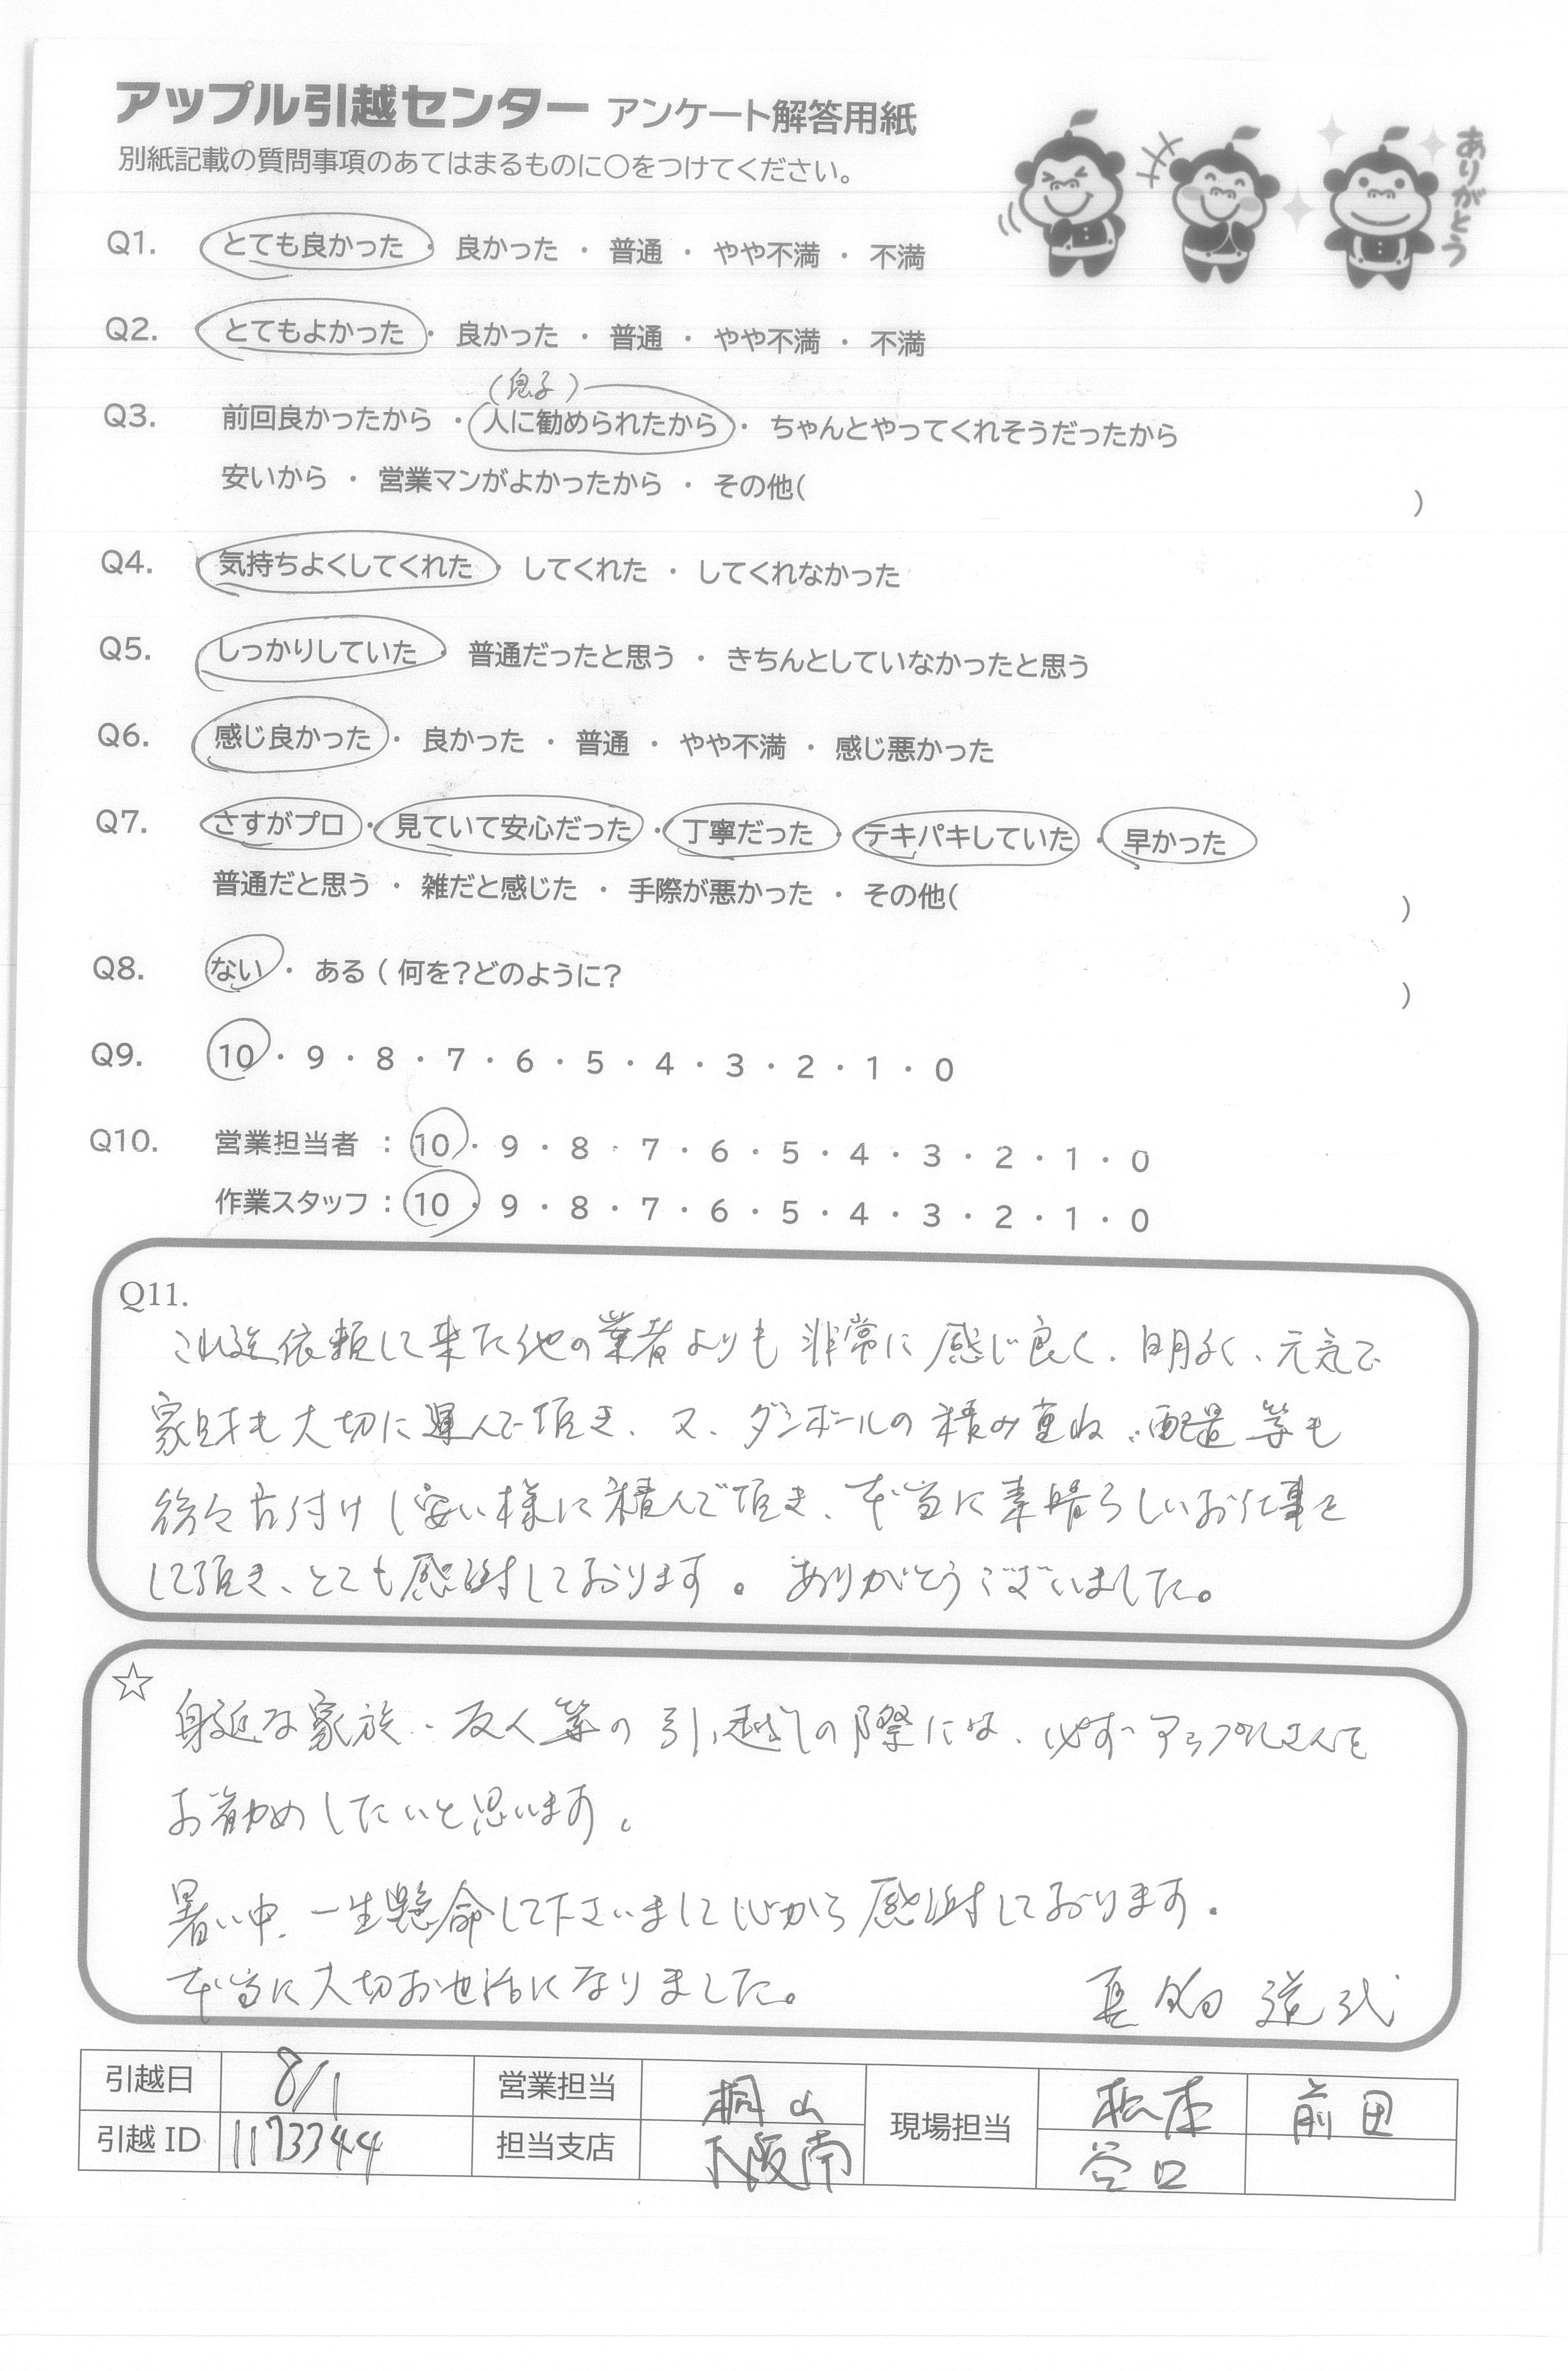 アップル引越センター アンケート解答用紙
別紙記載の質問事項のあてはまるものに○をつけてください。
ありがとう
Q1. とても良かった ・ 良かった ・ 普通 ・ やや不満 ・ 不満
Q2. とてもよかった ・ 良かった ・ 普通 ・ やや不満 ・ 不満
(息子)
Q3. 前回良かったから ・ 人に勧められたから ・ ちゃんとやってくれそうだったから
安いから ・ 営業マンがよかったから ・ その他( )
Q4. 気持ちよくしてくれた ・ してくれた ・ してくれなかった
Q5. しっかりしていた ・ 普通だったと思う ・ きちんとしていなかったと思う
Q6. 感じ良かった ・ 良かった ・ 普通 ・ やや不満 ・ 感じ悪かった
Q7. さすがプロ ・ 見ていて安心だった ・ 丁寧だった ・ テキパキしていた ・ 早かった
普通だと思う ・ 雑だと感じた ・ 手際が悪かった ・ その他( )
Q8. ない ・ ある ( 何を?どのように? )
Q9. 10 ・ 9 ・ 8 ・ 7 ・ 6 ・ 5 ・ 4 ・ 3 ・ 2 ・ 1 ・ 0
Q10. 営業担当者 : 10 ・ 9 ・ 8 ・ 7 ・ 6 ・ 5 ・ 4 ・ 3 ・ 2 ・ 1 ・ 0
作業スタッフ : 10 ・ 9 ・ 8 ・ 7 ・ 6 ・ 5 ・ 4 ・ 3 ・ 2 ・ 1 ・ 0
Q11.
これ迄依頼して来た他の業者よりも非常に感じ良く、明るく、元気で
家財も大切に運んで頂き、又、ダンボールの積み重ね、配置等も
後々片付けし安い様に積んで頂き、本当に素晴らしいお仕事を
して頂き、とても感謝しております。ありがとうございました。
☆
身近な家族、友人等の引っ越しの際には、必ずアップルさんを
お勧めしたいと思います。
暑い中、一生懸命して下さいまして心から感謝しております。
本当に大切お世話になりました。
引越日 8/1 営業担当 桐山 現場担当 松本 前田
引越 ID 1173344 担当支店 大阪南 谷口